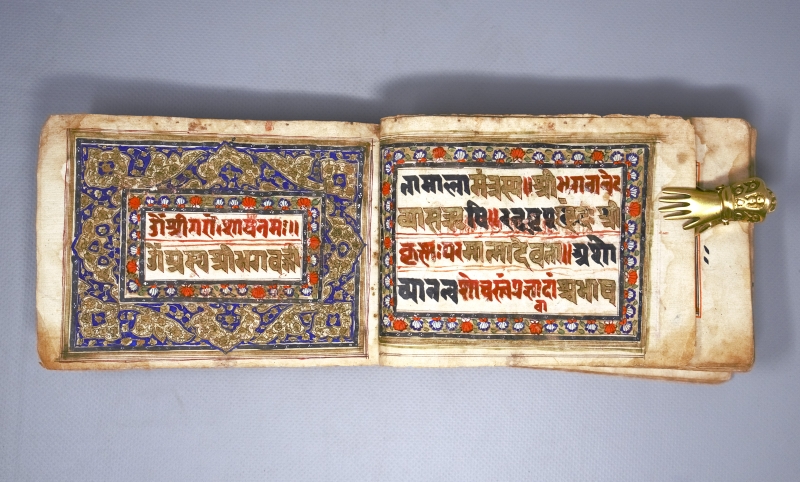 ॐ श्रीगणेशायनमः॥
ॐ अस्य श्रीभगवद्गी
तामालामंत्रस्य॥श्रीभगवान्वेद
व्यासऋषिः॥अनुष्टुप्छंदः श्री
कृष्णःपरमात्मादेवता॥अशो
च्यानन्वशोचस्त्वंप्रज्ञावादांश्चभाष